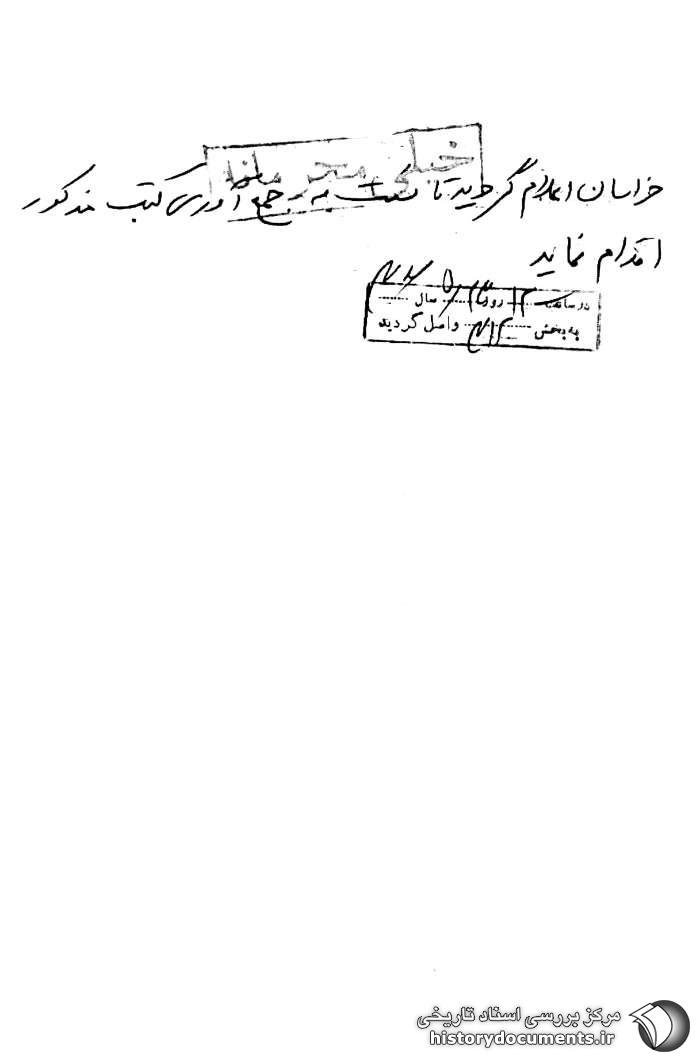 خیلی محرمانه
خراسان اعلام گردید تا نسبت به جمع آوری کتب مذکور
اقدام نماید
در ساعت روز سال
به بخش ۳۱۲ واصل گردید
مرکز بررسی اسناد تاریخی
historydocuments.ir